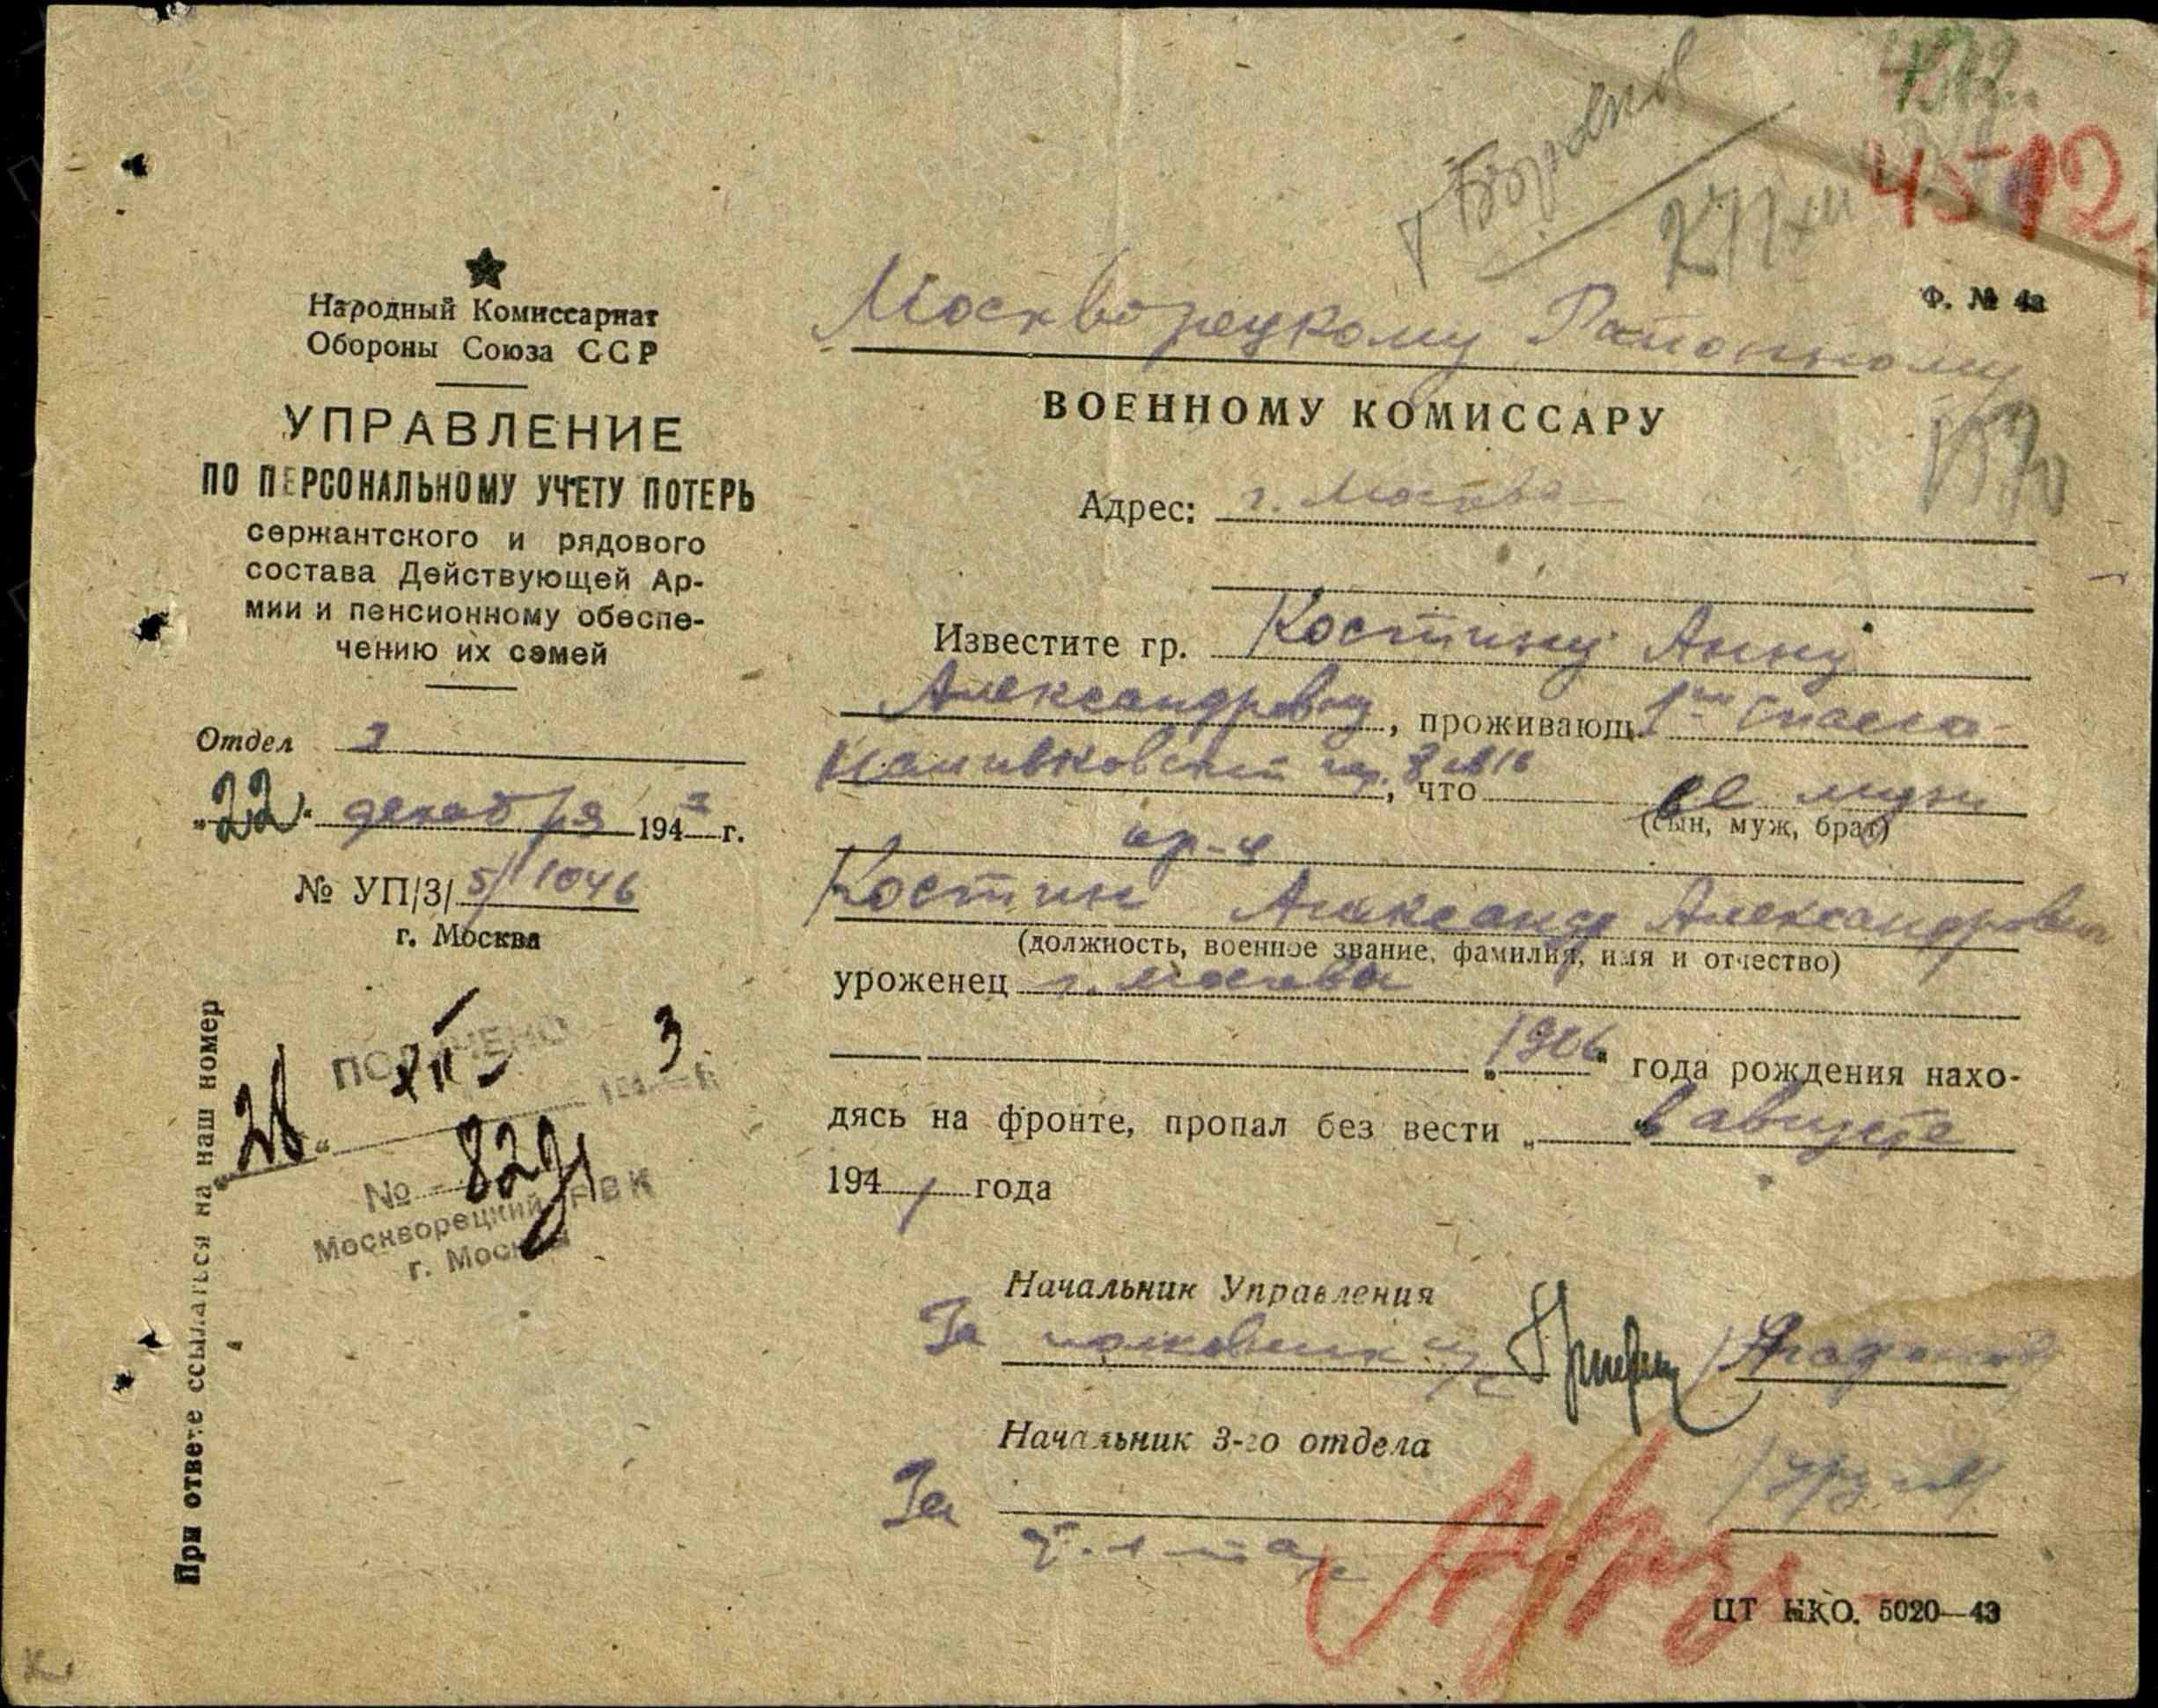 4512
Ф. № 4а
Народный Комиссариат
Обороны Союза ССР
УПРАВЛЕНИЕ
ПО ПЕРСОНАЛЬНОМУ УЧЕТУ ПОТЕРЬ
сержантского и рядового
состава Действующей Ар-
мии и пенсионному обеспе-
чению их семей
Отдел 3
"22" декабря 1943 г.
№ УП/3/5/1046
г. Москва
При ответе ссылаться на наш номер
ПОЛУЧЕНО
"28" XII 3
№ 829
Москворецкий РВК
г. Москвы
Москворецкому Районному
ВОЕННОМУ КОМИССАРУ
Адрес: г. Москва
Известите гр. Костину Анну
Александровну, проживающ. 1ый Спасо-
Наливковский пер. 8 кв 16, что ее муж
(сын, муж, брат)
кр-ц
Костин Александр Александрович
(должность, военное звание, фамилия, имя и отчество)
уроженец г. Москва
"1906" года рождения нахо-
дясь на фронте, пропал без вести " в августе
1941 года
Начальник Управления
За полковник
Начальник 3-го отдела
За
ЦТ НКО. 5020—43